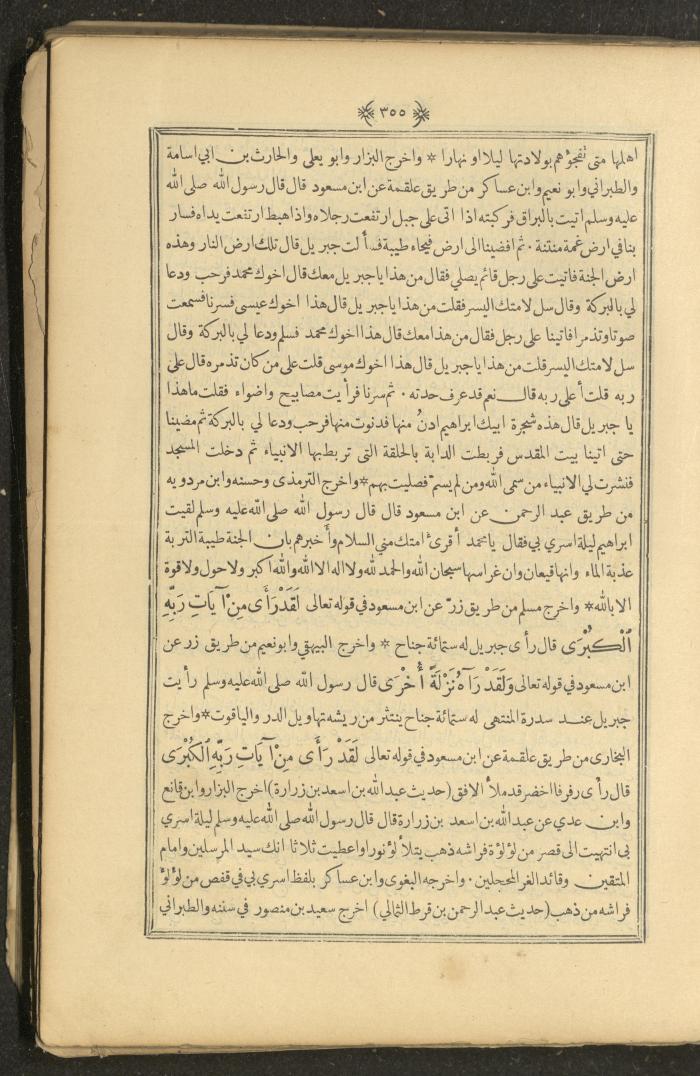 ٣٥٥
اهلها متى تفجؤهم بولادتها ليلا او نهارا * واخرج البزار وابو يعلى والحارث بن ابي اسامة
والطبراني وابو نعيم وابن عساكر من طريق علقمة عن ابن مسعود قال قال رسول الله صلى الله
عليه وسلم اتيت بالبراق فركبته اذا اتى على جبل ارتفعت رجلاه واذا هبط ارتفعت يداه فسار
بنا في ارض غمة منتنة ٠ ثم افضينا الى ارض فيحاء طيبة فسألت جبريل قال تلك ارض النار وهذه
ارض الجنة فاتيت على رجل قائم يصلي فقال من هذا ياجبريل معك قال اخوك محمد فرحب ودعا
لي بالبركة وقال سل لامتك اليسر فقلت من هذا ياجبريل قال هذا اخوك عيسى فسرنا فسمعت
صوتا وتذمرا فاتينا على رجل فقال من هذا معك قال هذا اخوك محمد فسلم ودعا لي بالبركة وقال
سل لامتك اليسر قلت من هذا ياجبريل قال هذا اخوك موسى قلت على من كان تذمره قال على
ربه قلت أعلى ربه قال نعم قد عرف حدته ٠ ثم سرنا فرأيت مصابيح واضواء فقلت ماهذا
يا جبريل قال هذه شجرة ابيك ابراهيم ادنُ منها فدنوت منها فرحب ودعا لي بالبركة ثم مضينا
حتى اتينا بيت المقدس فربطت الدابة بالحلقة التى تربط بها الانبياء ثم دخلت المسجد
فنشرت لي الانبياء من سمى الله ومن لم يسمّ فصليت بهم * واخرج الترمذى وحسنه وابن مردويه
من طريق عبد الرحمن عن ابن مسعود قال قال رسول الله صلى الله عليه وسلم لقيت
ابراهيم ليلة اسري بي فقال يامحمد أقرئ امتك مني السلام وأخبرهم بان الجنة طيبة التربة
عذبة الماء وانها قيعان وان غراسها سبحان الله والحمد لله ولا اله الا الله والله اكبر ولا حول ولا قوة
الا بالله * واخرج مسلم من طريق زرّ عن ابن مسعود في قوله تعالى لَقَدْ رَأَى مِنْ آيَاتِ رَبِّهِ
الْكُبْرَى قال رأى جبريل له ستمائة جناح * واخرج البيهقي وابو نعيم من طريق زر عن
ابن مسعود في قوله تعالى وَلَقَدْ رَآهُ نَزْلَةً أُخْرَى قال رسول الله صلى الله عليه وسلم رأيت
جبريل عند سدرة المنتهى له ستمائة جناح ينتثر من ريشه تهاويل الدر والياقوت * واخرج
البخارى من طريق علقمة عن ابن مسعود في قوله تعالى لَقَدْ رَأَى مِنْ آيَاتِ رَبِّهِ الْكُبْرَى
قال رأى رفرفا اخضر قد ملأ الافق (حديث عبدالله بن اسعد بن زرارة) اخرج البزار وابن قانع
وابن عدي عن عبد الله بن اسعد بن زرارة قال قال رسول الله صلى الله عليه وسلم ليلة اسري
بى انتهيت الى قصر من لؤلؤة فراشه ذهب يتلألؤ نورا واعطيت ثلاثا انك سيد المرسلين وامام
المتقين وقائد الغر المحجلين ٠ واخرجه البغوى وابن عساكر بلفظ اسري بي في قفص من لؤلؤ
فراشه من ذهب (حديث عبد الرحمن بن قرط الثمالي) اخرج سعيد بن منصور في سننه والطبراني